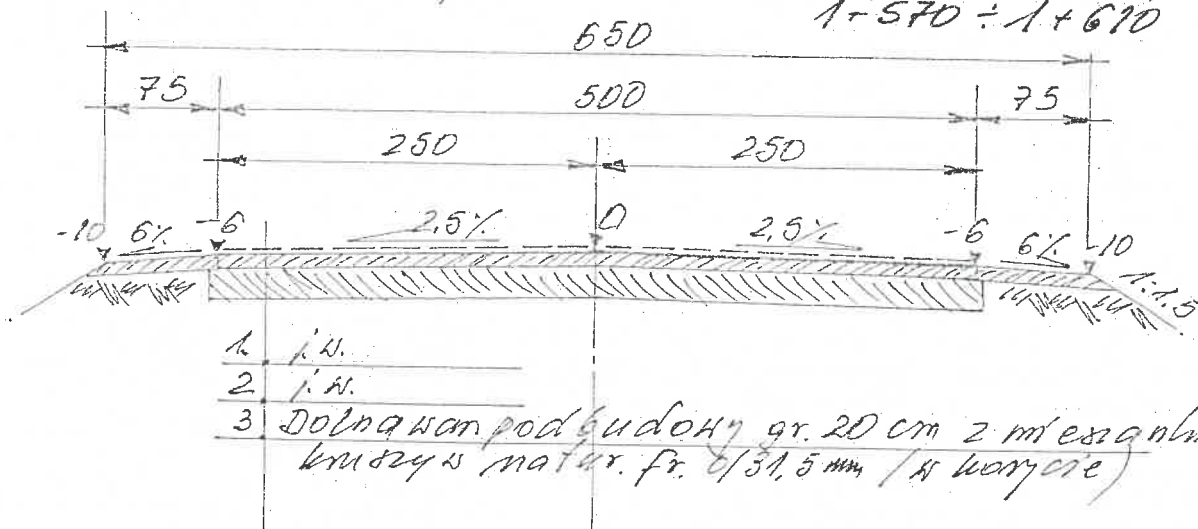 1+570 ÷ 1+610
650
75 500 75
250 250
-10 6% -6 2,5% 0 2,5% -6 6% -10
1:1,5
1. j.w.
2. j.w.
3. Dolna warn podbudowy gr. 20 cm z mieszanki
kruszyw natur. fr. 0/31,5 mm (w korycie)